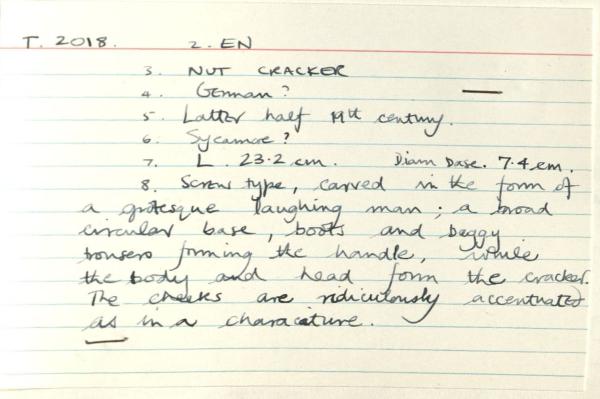 T. 2018. 2. EN
3. NUT CRACKER
4. German?
5. Latter half 19th century.
6. Sycamore?
7. L. 23.2 cm. Diam base. 7.4 cm.
8. Screw type, carved in the form of
a grotesque laughing man; a broad
circular base, boots and baggy
trousers forming the handle, while
the body and head form the cracker.
The cheeks are ridiculously accentuated
as in a characature.